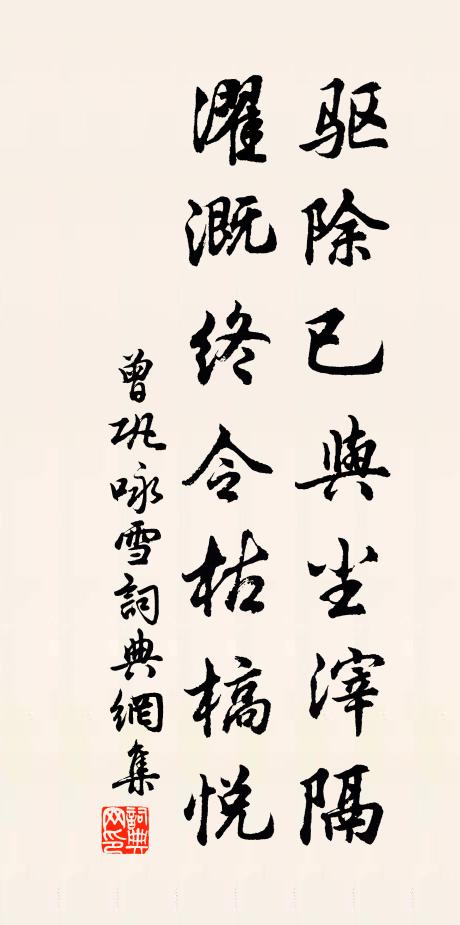 驱除已與尘滓隔
濯溉终令枯槁悦
曾巩咏雪詞典網集
詞典
网印